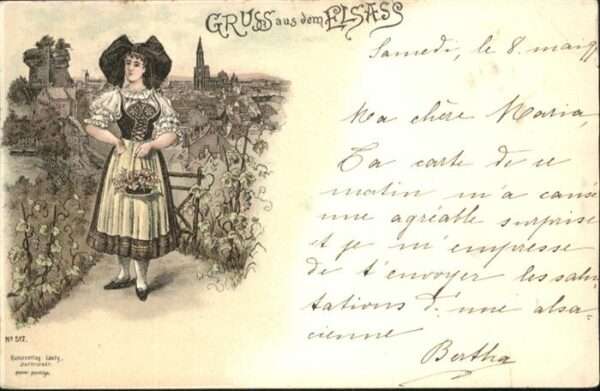 GRUSS aus dem ELSASS
Samedi, le 8. mai
Ma chère Maria,
Ta carte de ce
matin m'a causé
une agréable surprise
et je m'empresse
de t'envoyer les salu-
tations d'une alsa-
cienne
Bertha
No 517.